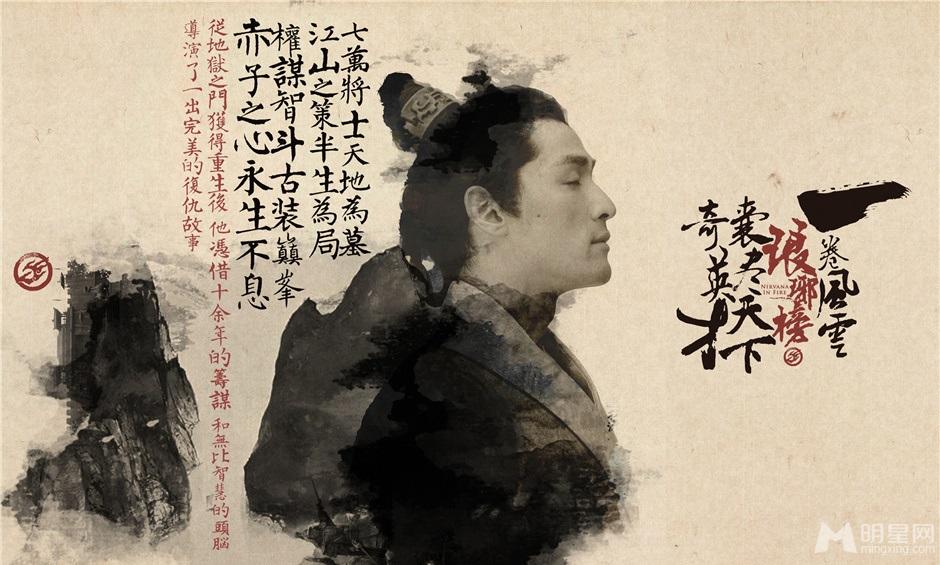 一卷風雲
琅琊榜
NIRVANA
IN FIRE
囊尽天下
奇英才
七萬將士天地為墓
江山之策半生為局
權謀智斗古裝巔峯
赤子之心永生不息
從地獄之門獲得重生後 他憑借十余年的籌謀 和無比智慧的頭腦
導演了一出完美的復仇故事
明星网
mingxing.com